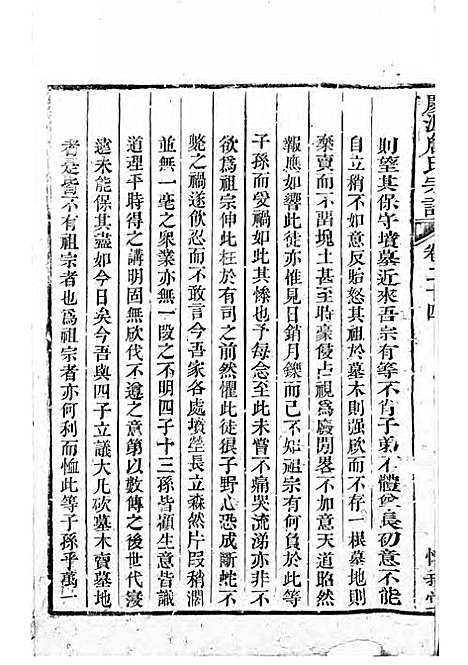 慶源詹氏宗譜
卷二十四
則望其保守墳墓近來吾宗有等不肖子弟不體爸長初意不能
自立稍不如意反於墓木則强砍而不存一根墓地則
棄賣而不留塊土甚至時豪侵占視爲廢閣畧不如意天道昭然
報應如響此徒亦惟見日銷月鑠而已不知祖宗有何負於此
子孫而愛禍一至此其慘也予每念至此未嘗不痛哭流涕亦非不
欲爲祖宗伸此枉於有司之前然懼此徒狠子野心恐成斷蛇不
斃之禍遂飲忍而不敢言今吾家各處墳塋長立森然片叚稍濶
並無一毫之衆業亦無一叚之不明四子十三孫皆頗生意皆識
道理平時得之講明固無砍伐不遵之意第以數傳之後世代
遠未能保其盡如今日矣今吾與四子立議大凡砍墓木賣墓地
者是皆不有祖宗者也爲祖宗者亦何利而恤此等子孫乎萬一